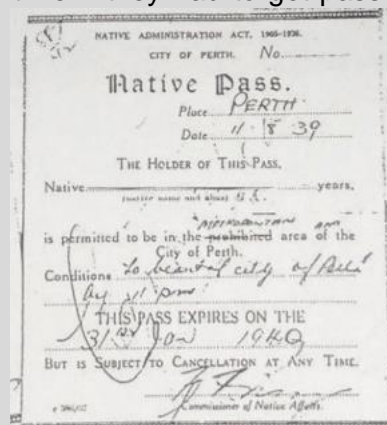 NATIVE ADMINISTRATION ACT, 1905-1936.
CITY OF PERTH. No.
Native Pass.
Place PERTH
Date 11 8 39
THE HOLDER OF THIS PASS.
Native years,
(native name and alias)
is permitted to be in the prohibited METROPOLITAN area of the
City of Perth.
Conditions To be out of city of Perth
by pm
THIS PASS EXPIRES ON THE
31st Jan 1940
BUT IS SUBJECT TO CANCELLATION AT ANY TIME.
Commissioner of Native Affairs.